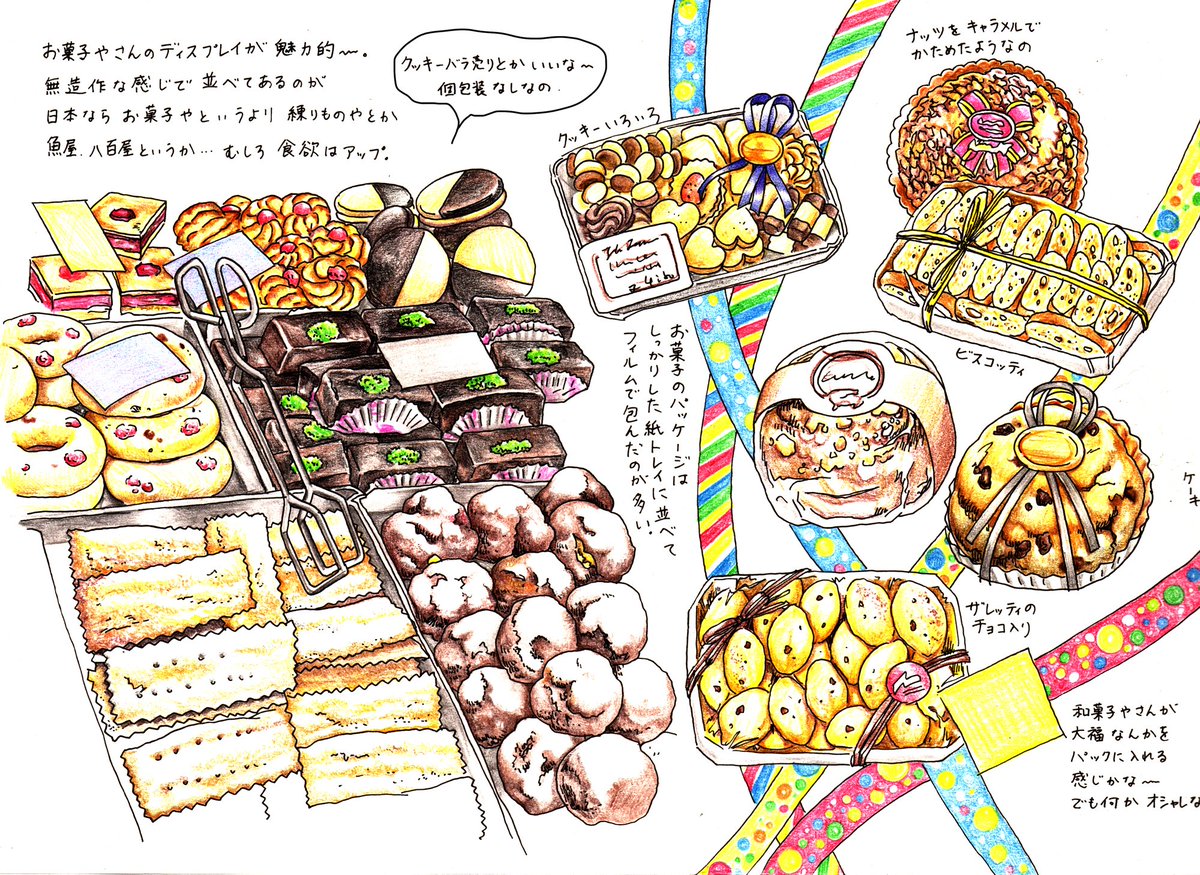 お菓子やさんのディスプレイが魅力的〜。
無造作な感じで並べてあるのが
日本なら お菓子やというより 練りものやとか
魚屋、八百屋というか… むしろ 食欲はアップ。
クッキーバラ売りとか いいな〜
個包装 なしなの.
クッキーいろいろ
ナッツをキャラメルで
かためたようなの
ビスコッティ
お菓子のパッケージは
しっかりした紙トレイに並べて
フィルムで包んだのが多い。
ケーキ
ザレッティの
チョコ入り
和菓子やさんが
大福なんかを
パックに入れる
感じかな〜
でも何か オシャレな